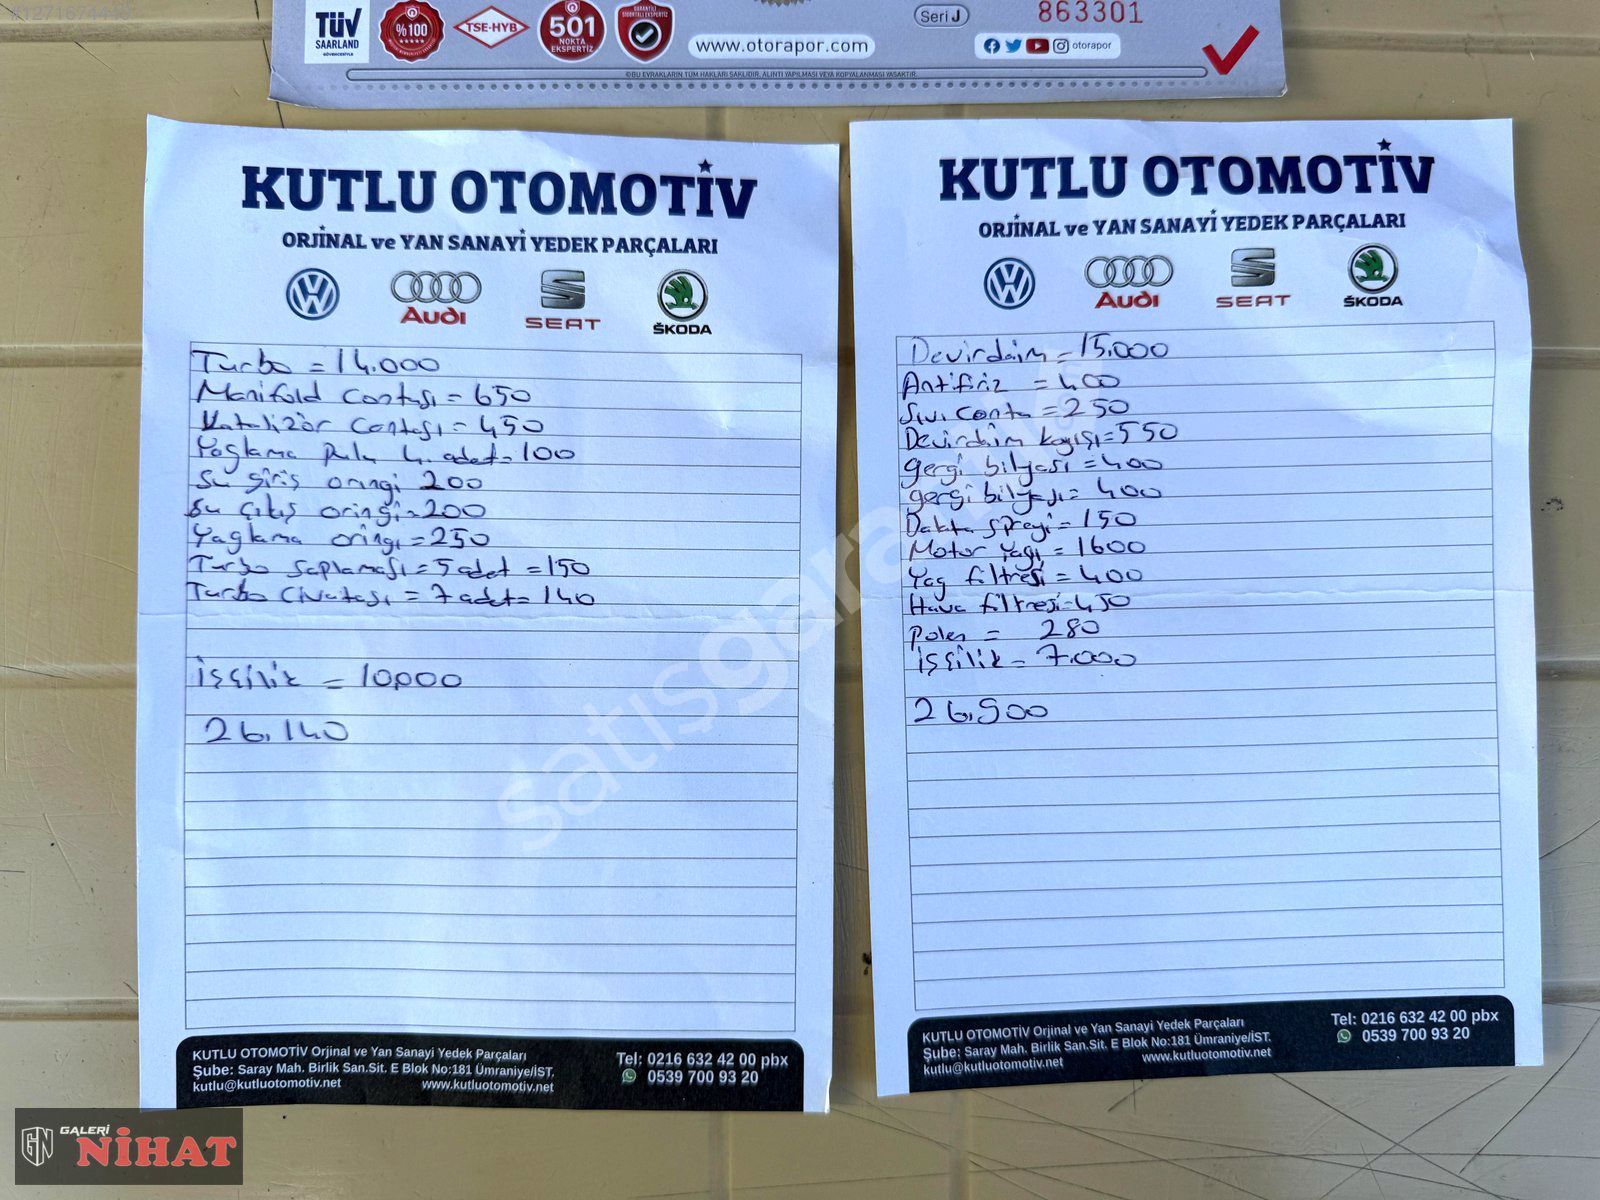 #1271674443
TÜV
SAARLAND
%100
TSE-HYB
501
NOKTA
EKSPERTİZ
www.otorapor.com
Seri J
863301
otorapor
©BU EVRAKLARIN TÜM HAKLARI SAKLIDIR, ALINTI YAPILMASI VEYA KOPYALANMASI YASAKTIR.
KUTLU OTOMOTİV
ORJİNAL ve YAN SANAYİ YEDEK PARÇALARI
Audi
SEAT
ŠKODA
Turbo = 14.000
Manifold contası = 650
Katalizör contası = 450
Yağlama pulu 4. adet = 100
Su giriş oringi 200
Su çıkış oringi = 200
Yağlama oringi = 250
Turbo saplaması = 5 adet = 150
Turbo civatası = 7 adet = 140
İşçilik = 10.000
26.140
KUTLU OTOMOTİV Orjinal ve Yan Sanayi Yedek Parçaları
Şube: Saray Mah. Birlik San.Sit. E Blok No:181 Ümraniye/İST.
kutlu@kutluotomotiv.net www.kutluotomotiv.net
Tel: 0216 632 42 00 pbx
0539 700 93 20
KUTLU OTOMOTİV
ORJİNAL ve YAN SANAYİ YEDEK PARÇALARI
Audi
SEAT
ŠKODA
Devirdaim = 15.000
Antifiriz = 400
Sıvı conta = 250
Devirdaim kayışı = 550
gergi bilyası = 400
gergi bilyası = 400
Balata spreyi = 150
Motor Yağı = 1600
Yağ filtresi = 400
Hava filtresi = 450
Polen = 280
İşçilik = 7.000
26.900
KUTLU OTOMOTİV Orjinal ve Yan Sanayi Yedek Parçaları
Şube: Saray Mah. Birlik San.Sit. E Blok No:181 Ümraniye/İST.
kutlu@kutluotomotiv.net www.kutluotomotiv.net
Tel: 0216 632 42 00 pbx
0539 700 93 20
GN GALERİ
NİHAT